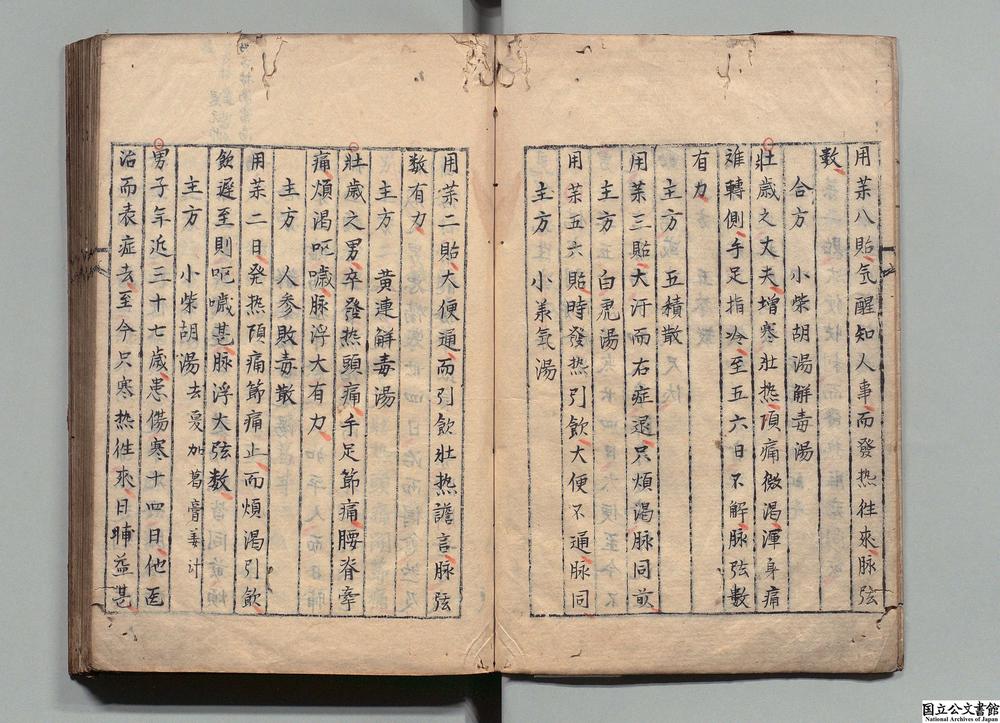 用药八貼気醒知人事而發热徃來脉弦
数
合方 小柴胡湯解毒湯
壯歳之丈夫増寒壮热項痛微渇渾身痛
难轉側手足指冷至五六日不解脉弦数
有力
主方 五積散
用药三貼大汗而右症退只煩渇脉同前
主方 白虎湯
用药五六貼時發热引飲大便不通脉同
主方 小羕気湯
用药二貼大便通而引飲壮热譫言脉弦
数有力
主方 黄連解毒湯
壯歳之男卒發热頭痛手足節痛腰脊牽
痛煩渇呕噦脉浮大有力
主方 人参敗毒散
用药二日發热項痛節痛止而煩渇引飲
飲遅至則呕噦甚脉浮大弦数
主方 小柴胡湯去夏加葛膏姜汁
男子年近三十七歳患傷寒十四日他医
治而表症去至今只寒热徃來日晡益甚
国立公文書館
National Archives of Japan